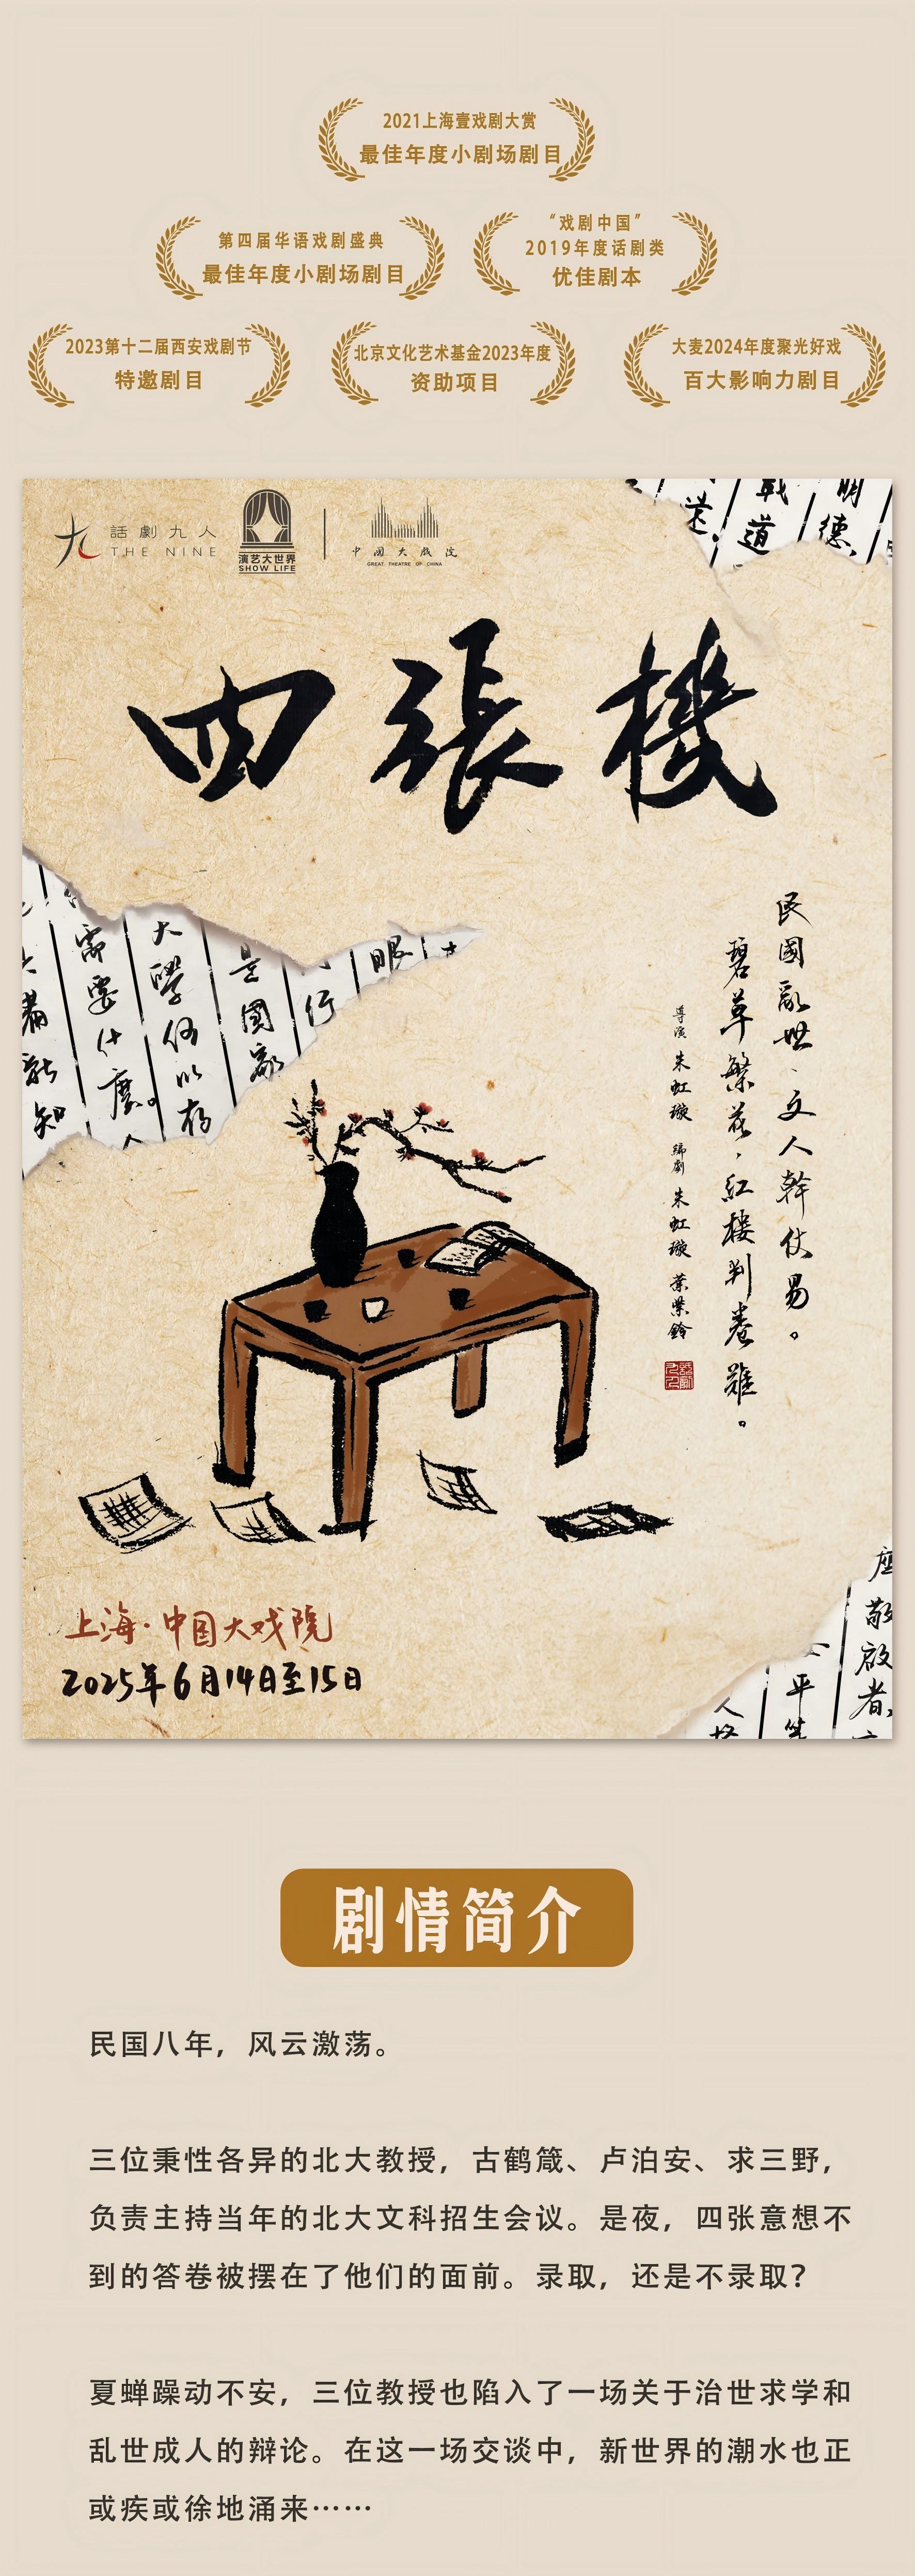 2021上海壹戏剧大赏
最佳年度小剧场剧目
第四届华语戏剧盛典
最佳年度小剧场剧目
“戏剧中国”
2019年度话剧类
优佳剧本
2023第十二届西安戏剧节
特邀剧目
北京文化艺术基金2023年度
资助项目
大麦2024年度聚光好戏
百大影响力剧目
話劇九人
THE NINE
演艺大世界
SHOW LIFE
中国大戏院
GREAT THEATRE OF CHINA
明德,
戰道
四張機
眼
行
是國家
大學何以存
需要什麼。
能知
民國亂世,文人幹仗易。
碧草繁花,紅樓判卷難。
導演 朱虹璇 編劇 朱虹璇 葉紫鈴
座
敬啟者,
平生
人格
上海·中国大戏院
2025年6月14日至15日
剧情简介
民国八年，风云激荡。
三位秉性各异的北大教授，古鹤箴、卢泊安、求三野，
负责主持当年的北大文科招生会议。是夜，四张意想不
到的答卷被摆在了他们的面前。录取，还是不录取？
夏蝉躁动不安，三位教授也陷入了一场关于治世求学和
乱世成人的辩论。在这一场交谈中，新世界的潮水也正
或疾或徐地涌来……